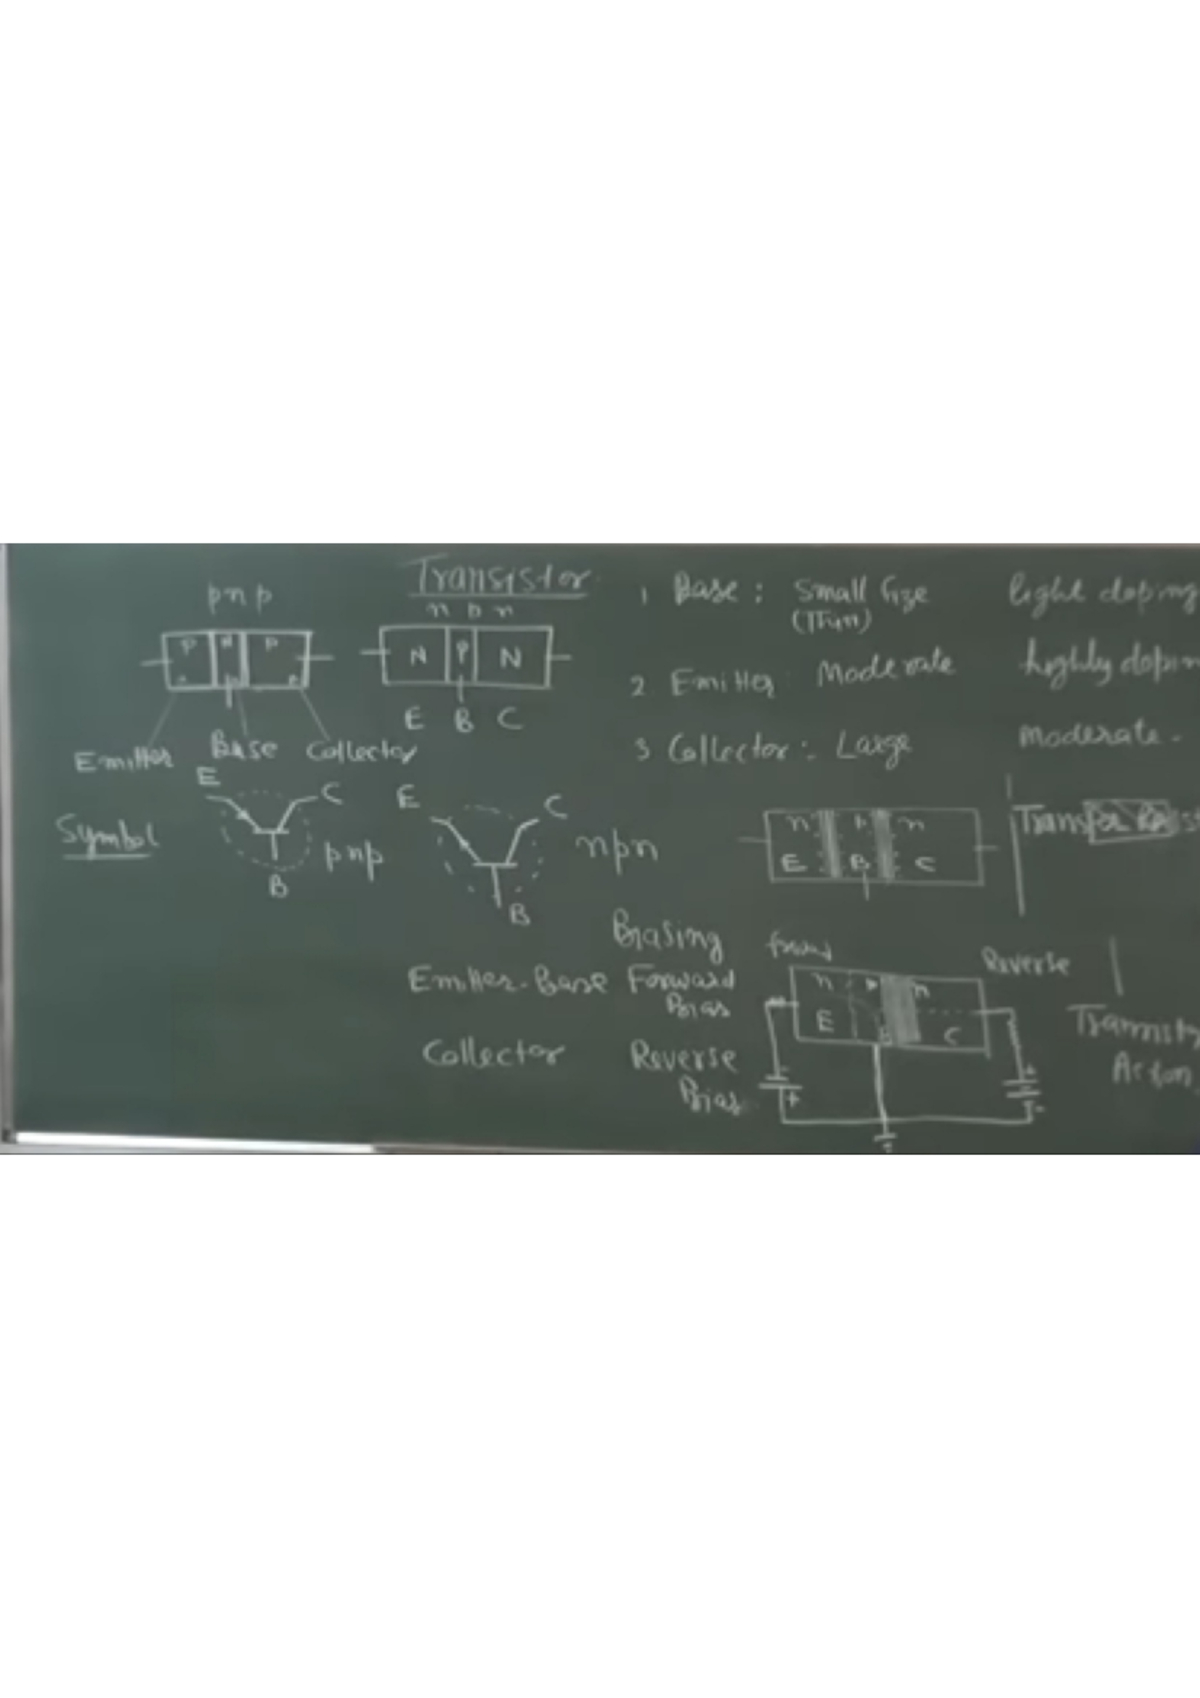 Transistor
pnp
n p n
P N P
N P N
E B C
Emitter Base Collector
1 Base : Small Size light doping
(Thin)
2 Emitter : Moderate highly dopin
3 Collector :- Large moderate.
Symbol
E C
B
pnp
E C
B
npn
n p n
E B C
Biasing
Emitter-Base Forward
Bias
Collector Reverse
Bias
Reverse
n p n
E B C
- +
+ -
Transisto
Action